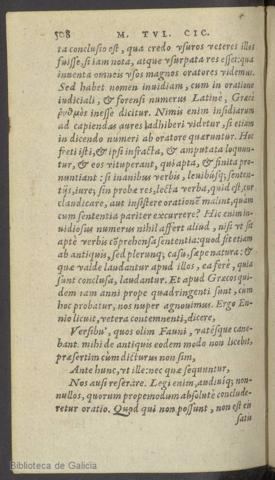 508 M. TVL. CIC.
ta conclusio est, qua credo vsuros veteres illos
fuisse, si iam nota, atque vsurpata res esset: qua
inuenta omneis vsos magnos oratores videmus.
Sed habet nomen inuidiam, cum in oratione
iudiciali, & forensi numerus Latinè, Græcè
ῥυθμὸς inesse dicitur. Nimis enim insidiarum
ad capiendas aures adhiberi videtur, si etiam
in dicendo numeri ab oratore quæruntur. Hoc
freti isti, & ipsi infracta, & amputata loquun-
tur, & eos vituperant, qui apta, & finita pro-
nuntiant: si inanibus verbis, leuibúsq; senten-
tijs, iure; sin probæ res, lecta verba, quid est, cur
claudicare, aut insistere orationẽ malint, quàm
cum sententia pariter excurrere? Hic enim in-
uidiosus numerus nihil affert aliud, nisi vt sit
aptè verbis cõprehensa sententia: quod fit etiam
ab antiquis, sed plerunq; casu, sæpe natura: &
quæ valde laudantur apud illos, ea ferè, quia
sunt conclusa, laudantur. Et apud Græcos qui-
dem iam anni prope quadringenti sunt, cum
hoc probatur, nos nuper agnouimus. Ergo En-
nio licuit, vetera contemnenti, dicere,
Versibu', quos olim Fauni, vatésque cane-
bant. mihi de antiquis eodem modo non licebit,
præsertim cùm dicturus non sim,
Ante hunc, vt ille: nec quæ sequuntur,
Nos ausi reserare. Legi enim, audiuíq; non-
nullos, quorum propemodum absolutè conclude-
retur oratio. Quod qui non possunt, non est eis
satis
Biblioteca de Galicia